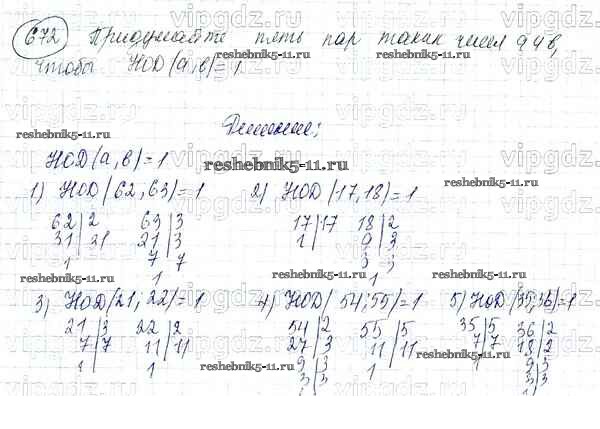 672 Придумайте пять пар таких чисел а и в,
чтобы НОД (а, в) = 1.
reshebnik5-11.ru
Решение:
НОД (а, в) = 1
1) НОД (62, 63) = 1 2) НОД (17, 18) = 1
62|2 63|3 17|17 18|2
31|31 21|3 1 9|3
1 7|7 3|3
1 1
3) НОД (21, 22) = 1 4) НОД (54, 55) = 1 5) НОД (35, 36) = 1
21|3 22|2 54|2 55|5 35|5 36|2
7|7 11|11 27|3 11|11 7|7 18|2
1 1 9|3 1 1 9|3
3|3 3|3